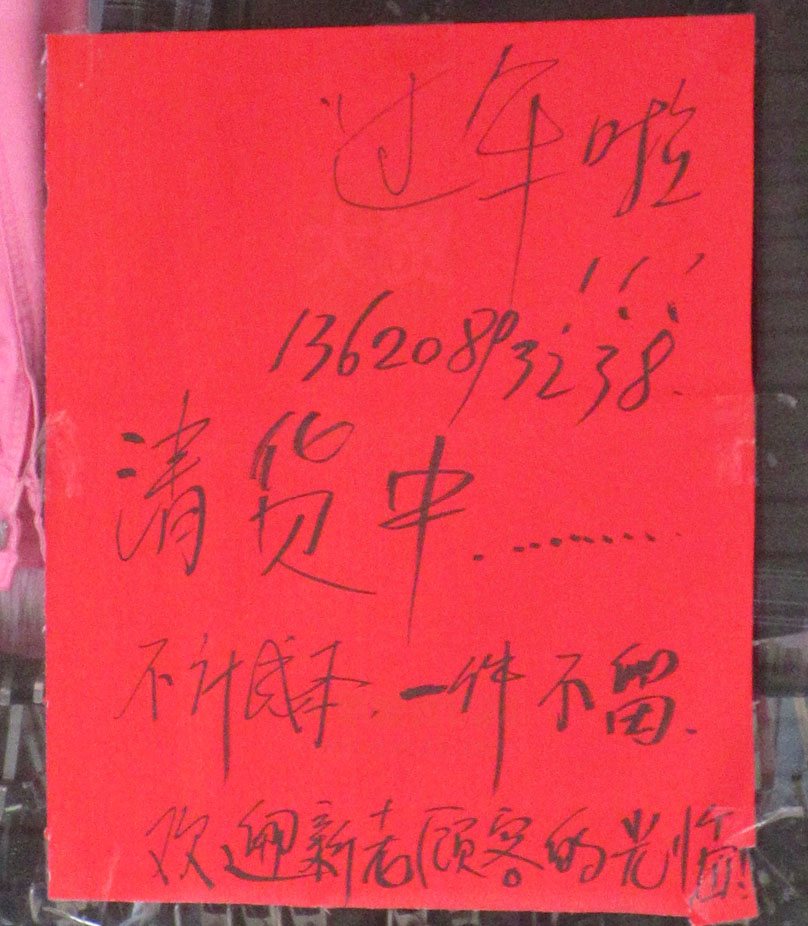 过年啦
!!!
13620893238.
清货中.........
不计成本.一件不留.
欢迎新老顾客的光临!